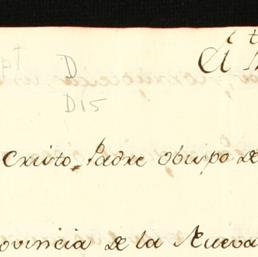 D
D15
Cristo, Padre Obispo de
ovincia de la Nueva